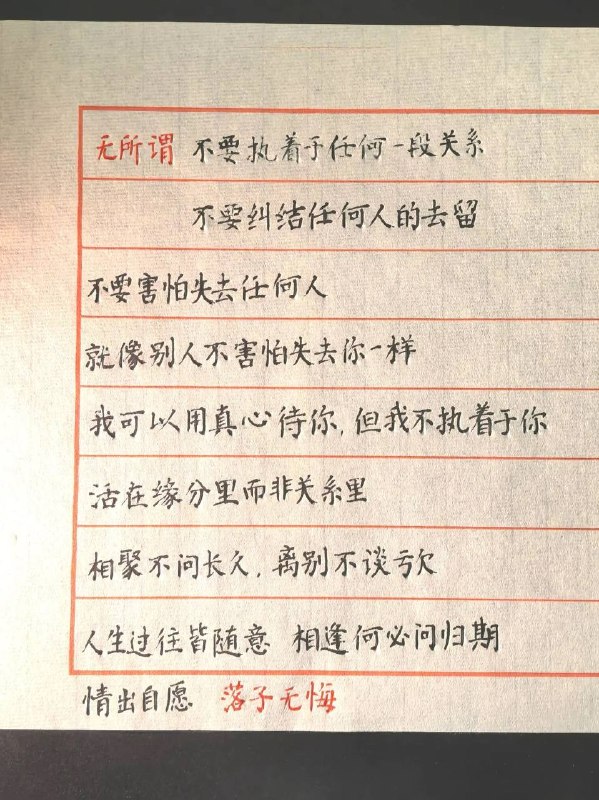 无所谓 不要执着于任何一段关系
不要纠结任何人的去留
不要害怕失去任何人
就像别人不害怕失去你一样
我可以用真心待你,但我不执着于你
活在缘分里而非关系里
相聚不问长久,离别不谈亏欠
人生过往皆随意 相逢何必问归期
情出自愿 落子无悔